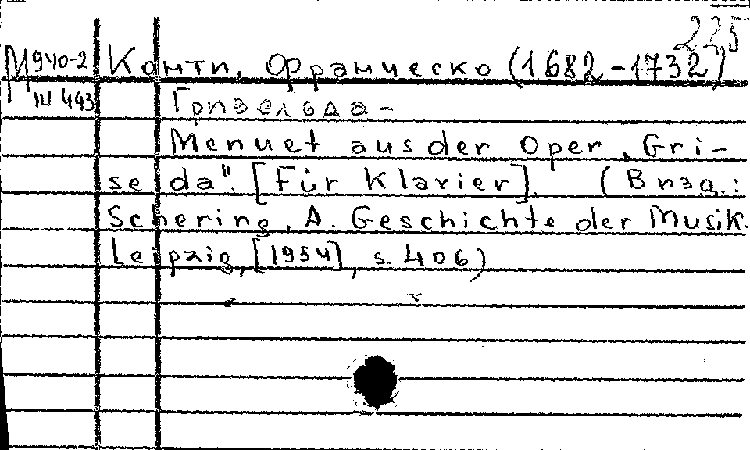 225
М940-2 Конти, Франческо (1682-1732)
Ш 443 Гризельда -
Menuet aus der Oper „Gri-
selda". [Für Klavier]. (В изд.:
Schering, A. Geschichte der Musik.
Leipzig, [1954], s. 406)